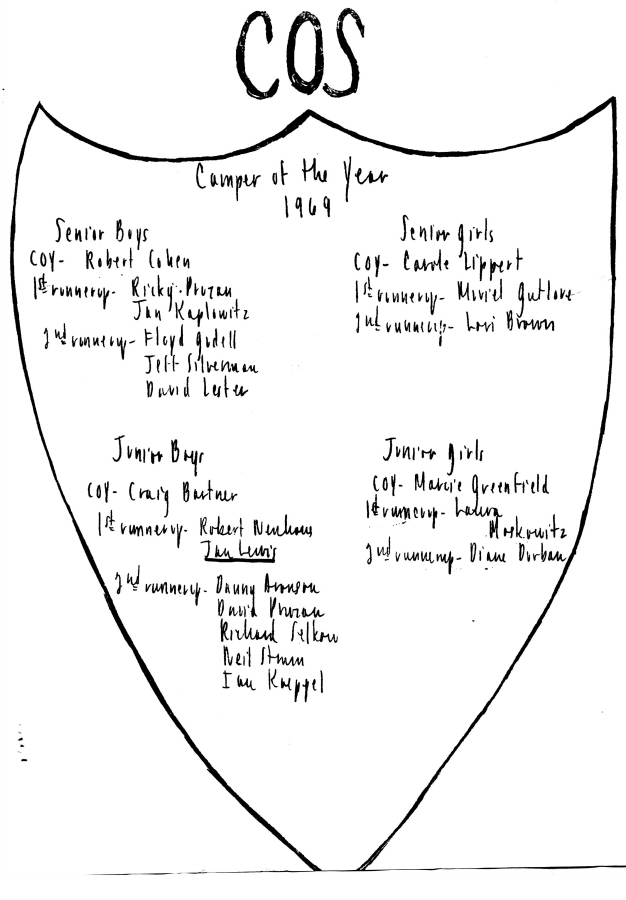 COS
Camper of the Year
1969
Senior Boys
COY- Robert Cohen
1st runnerup- Ricky Pruzan
Jan Kaplowitz
2nd runnerup- Floyd Godell
Jeff Silverman
David Lester
Senior Girls
COY- Carole Lippert
1st runnerup- Muriel Gutlove
2nd runnerup- Lori Brown
Junior Boys
COY- Craig Bartner
1st runnerup- Robert Neuhaus
Jan Lewis
2nd runnerup- Danny Aronson
David Pruzan
Richard Selkow
Neil
Ian Koeppel
Junior Girls
COY- Marcie Greenfield
1st runnerup- Laura
Moskowitz
2nd runnerup- Diane Durban